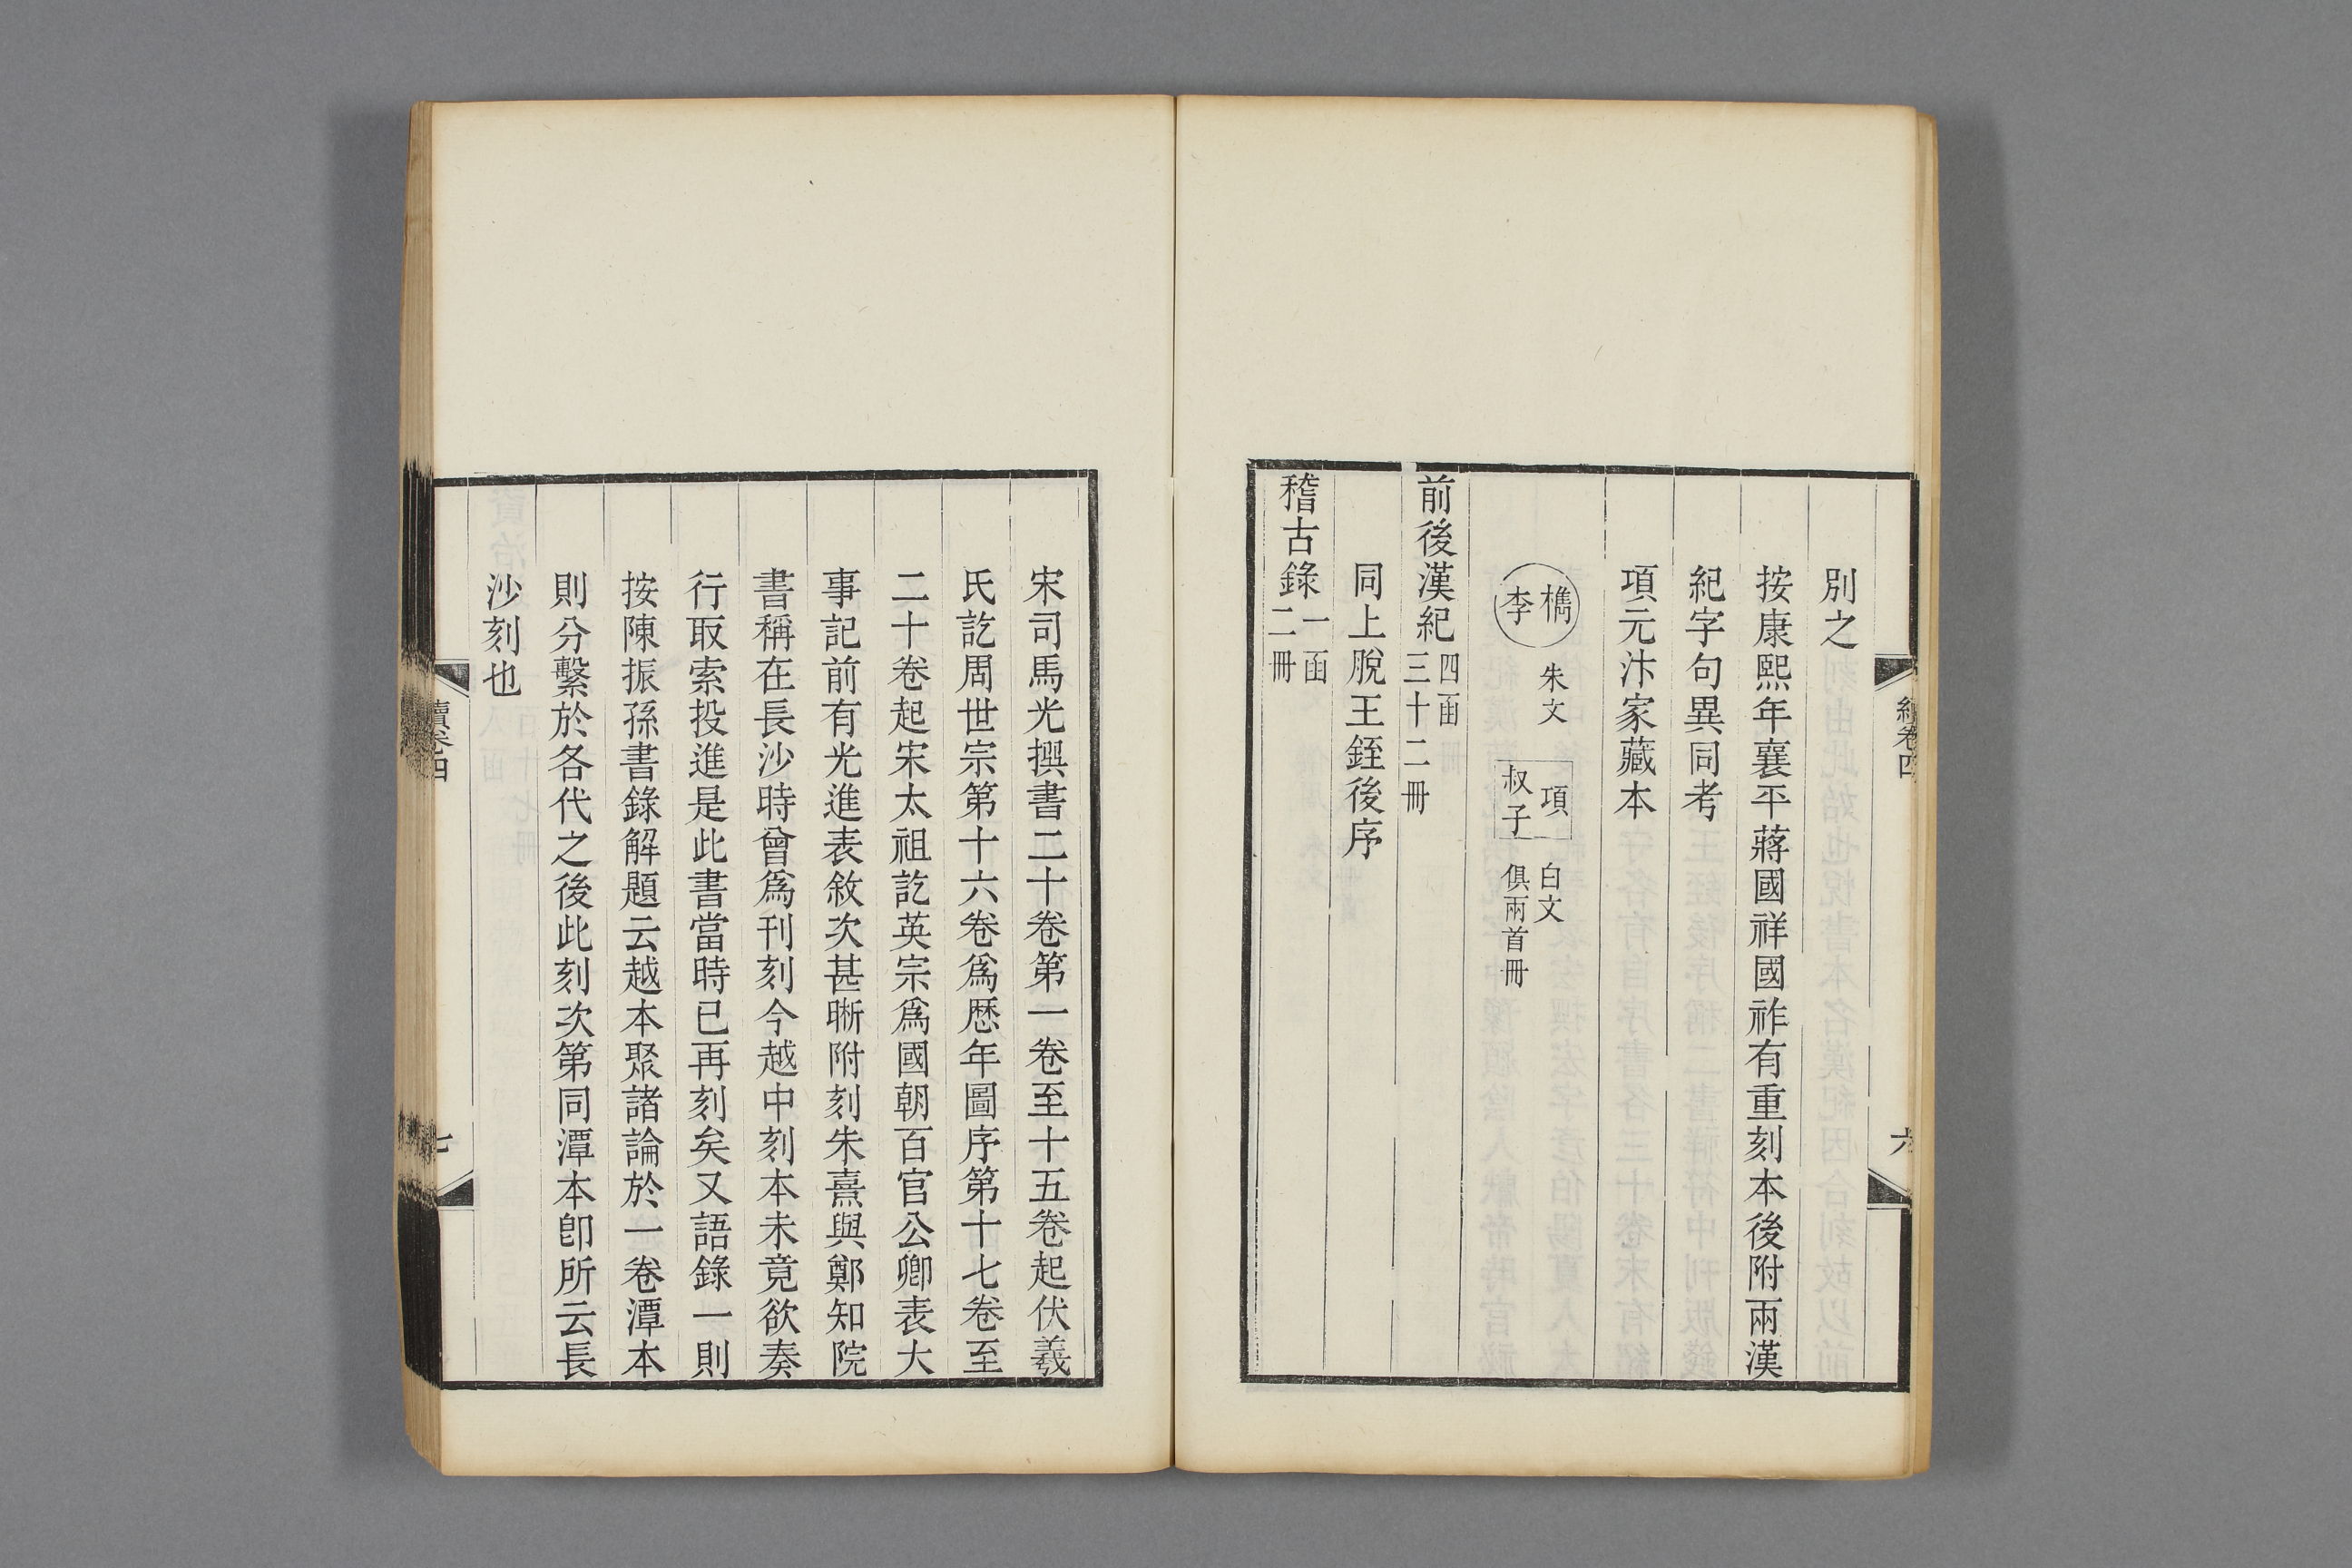 別之
按康熙年襄平蔣國祥國祚有重刻本後附兩漢
紀字句異同考
項元汴家藏本
檇李
朱文
項叔子
白文
俱兩首冊
前後漢紀
四函
三十二冊
同上脫王銍後序
稽古錄
一函
二冊
續卷四
六
宋司馬光撰書二十卷第一卷至十五卷起伏羲
氏訖周世宗第十六卷爲歷年圖序第十七卷至
二十卷起宋太祖訖英宗爲國朝百官公卿表大
事記前有光進表敘次甚晰附刻朱熹與鄭知院
書稱在長沙時曾爲刊刻今越中刻本未竟欲奏
行取索投進是此書當時已再刻矣又語錄一則
按陳振孫書錄解題云越本聚諸論於一卷潭本
則分繫於各代之後此刻次第同潭本卽所云長
沙刻也
續卷四
七